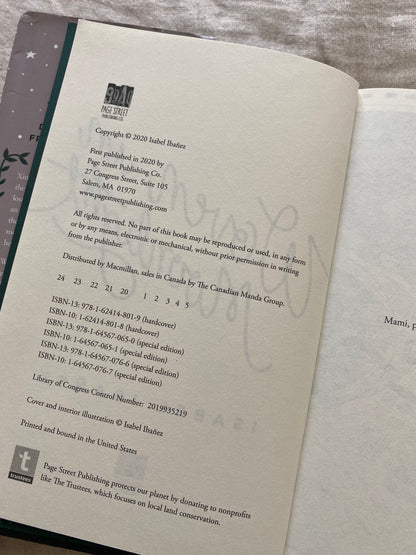 PAGE STREET
PUBLISHING CO.
Copyright © 2020 Isabel Ibañez
First published in 2020 by
Page Street Publishing Co.
27 Congress Street, Suite 105
Salem, MA 01970
www.pagestreetpublishing.com
All rights reserved. No part of this book may be reproduced or used, in any form
or by any means, electronic or mechanical, without prior permission in writing
from the publisher.
Distributed by Macmillan, sales in Canada by The Canadian Manda Group.
24 23 22 21 20 1 2 3 4 5
ISBN-13: 978-1-62414-801-9 (hardcover)
ISBN-10: 1-62414-801-8 (hardcover)
ISBN-13: 978-1-64567-065-0 (special edition)
ISBN-10: 1-64567-065-1 (special edition)
ISBN-13: 978-1-64567-076-6 (special edition)
ISBN-10: 1-64567-076-7 (special edition)
Library of Congress Control Number: 2019935219
Cover and interior illustration © Isabel Ibañez
Printed and bound in the United States
t
trustees
Page Street Publishing protects our planet by donating to nonprofits
like The Trustees, which focuses on local land conservation.
Mami, p